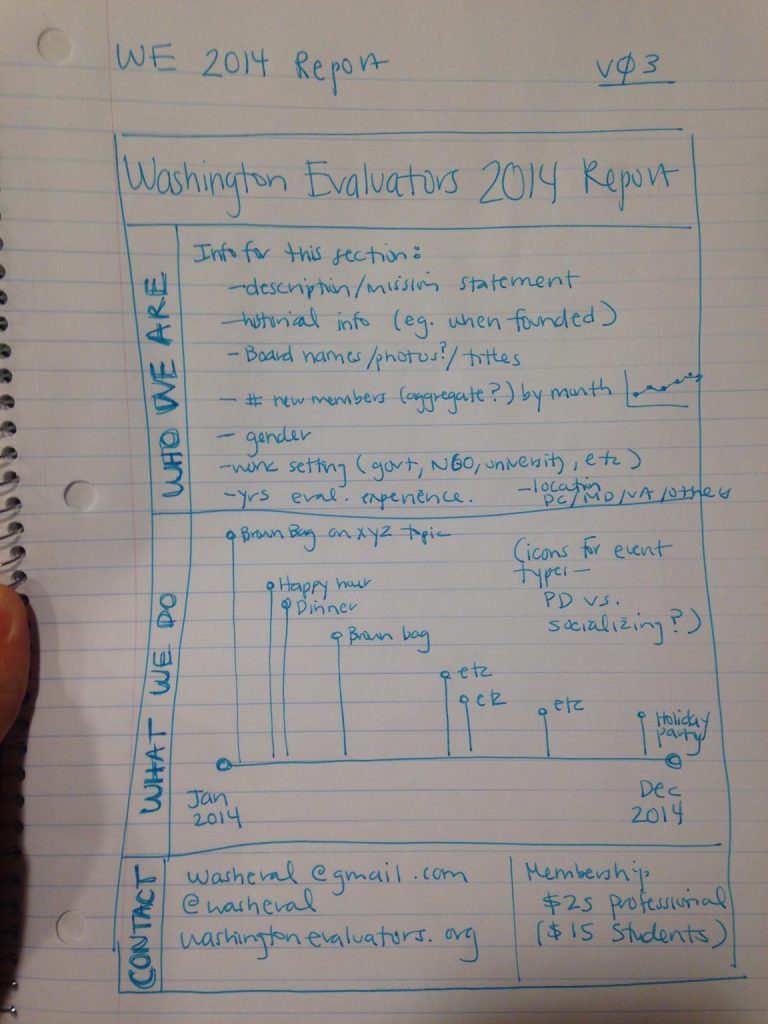 WE 2014 Report
vØ3
Washington Evaluators 2014 Report
WHO WE ARE
Info for this section:
- description/mission statement
- historical info (eg. when founded)
- Board names/photos?/titles
- # new members (aggregate?) by month
- gender
- work setting (govt, NGO, university, etc)
- yrs eval. experience.
- location
DC/MD/VA/others
WHAT WE DO
Brown Bag on XYZ topic
(icons for event
types—
PD vs.
socializing?)
Happy hour
Dinner
Brown bag
etc
etc
etc
Holiday
party
Jan
2014
Dec
2014
CONTACT
washeval@gmail.com
@washeval
washingtonevaluators.org
Membership
$25 professional
($15 students)